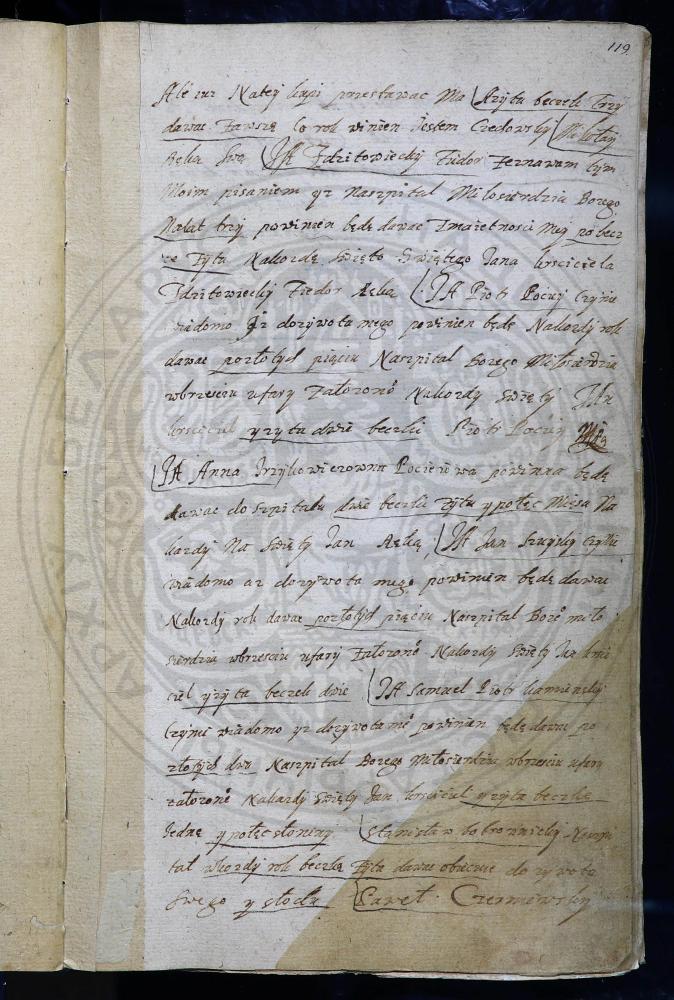 119
Ale iuz Natey kupi przestawac Ma Azyta beczek Trzy
dawac Zawszę Co rok winien Jestem Czedowsky Mikołay
Ręką Swą JA Zdzitowieckij Fiedor Zeznawam tym
Moim pisaniem yz Naszpital Miłosierdzia Bozego
Nalat trzy powinien będę dawac Zmaiętnosci Mey po becz
ce Zyta Nakozdę Swięto Swiętego Jana krsciciela
Zdzitowieckij Fiedor Ręką JA Piotr Pociey Czynię
wiadomo Jz dozywota mego powinien będę Nakozdy rok
dawac pozłotych pięciu Naszpital Bozego Miłosierdzia
wbrzesciu ufary Załozono Nakozdy Swięty Jan
krsciciel yzyta dwie beczki Piotr Pociey
JA Anna Pocieiowa powinna będę
dawac do Szpitalu dwie beczki zytu ypołec Mięsa Na
kazdy Na Swięty Jan Ręką JA Jan Czynię
wiadomo az dozywota mego powinien będę dawac
Nakozdy rok dawac pozłotych pięciu Naszpital Bozo miło
sierdzia wbrzesciu ufary Załozono Nakozdy Swięty Jan krsci
ciel yzyta beczek dwie JA Samuel Piotr kamienskij
Czynię wiadomo yz dozywota me powinien będę dawac po
złotych dwa Naszpital Bozego Miłosierdzia wbrzesciu ufary
załozono Nakazdy Swięty Jan krsciciel yzyta beczkę
Jednę ypołec słoniny Stanisław bobrownicky
tal wkozdy rok beczkę Zyta dawac obiecuie do zywota
Swego y słodu Paweł Czerniewsky